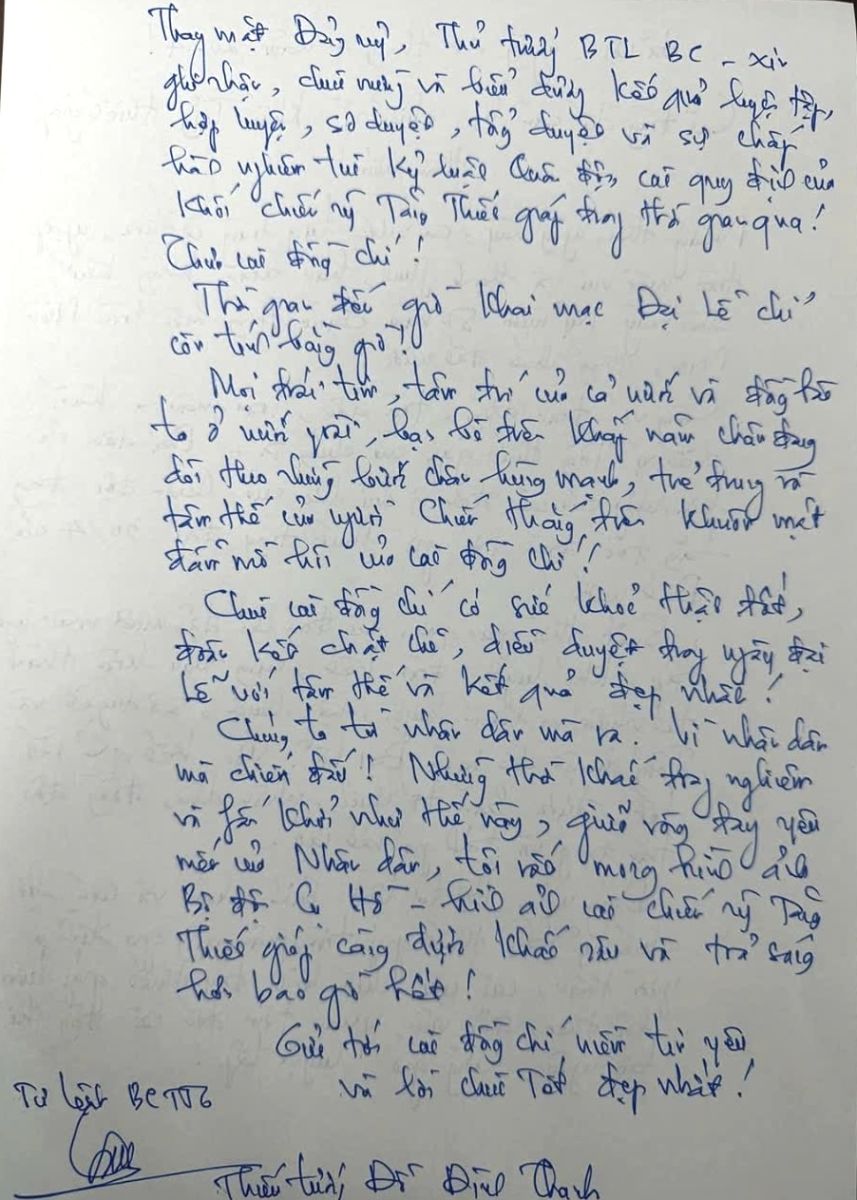 Thay mặt Đảng uỷ, Thủ trưởng BTL BC - xin
ghi nhận, chúc mừng và biểu dương kết quả luyện tập,
hợp luyện, sơ duyệt, tổng duyệt và sự chấp
hành nghiêm túc kỷ luật Quân đội, các quy định của
Khối chiến sỹ Tăng Thiết giáp trong thời gian qua!
Thưa các đồng chí!
Thời gian đến giờ khai mạc Đại Lễ chỉ
còn tính bằng giờ!
Mọi trái tim, tâm trí của cả nước và đồng bào
ta ở nước ngoài, bạn bè trên khắp năm châu đang
dõi theo những bước chân hùng mạnh, trẻ trung và
tâm thế của người Chiến thắng trên khuôn mặt
đẫm mồ hôi của các đồng chí!
Chúc các đồng chí có sức khoẻ thật tốt,
đoàn kết chặt chẽ, diễu duyệt trong ngày đại
Lễ với tâm thế và kết quả đẹp nhất!
Chúng ta từ nhân dân mà ra. Vì nhân dân
mà chiến đấu! Những thời khắc trang nghiêm
và phấn khởi như thế này, giữa vòng tay yêu
mến của Nhân dân, tôi rất mong hình ảnh
Bộ đội Cụ Hồ - hình ảnh các chiến sỹ Tăng
Thiết giáp càng được khắc sâu và toả sáng
hơn bao giờ hết!
Gửi tới các đồng chí niềm tin yêu
và lời chúc Tốt đẹp nhất!
Tư lệnh BC TTG
Thiếu tướng Đỗ Đình Thanh